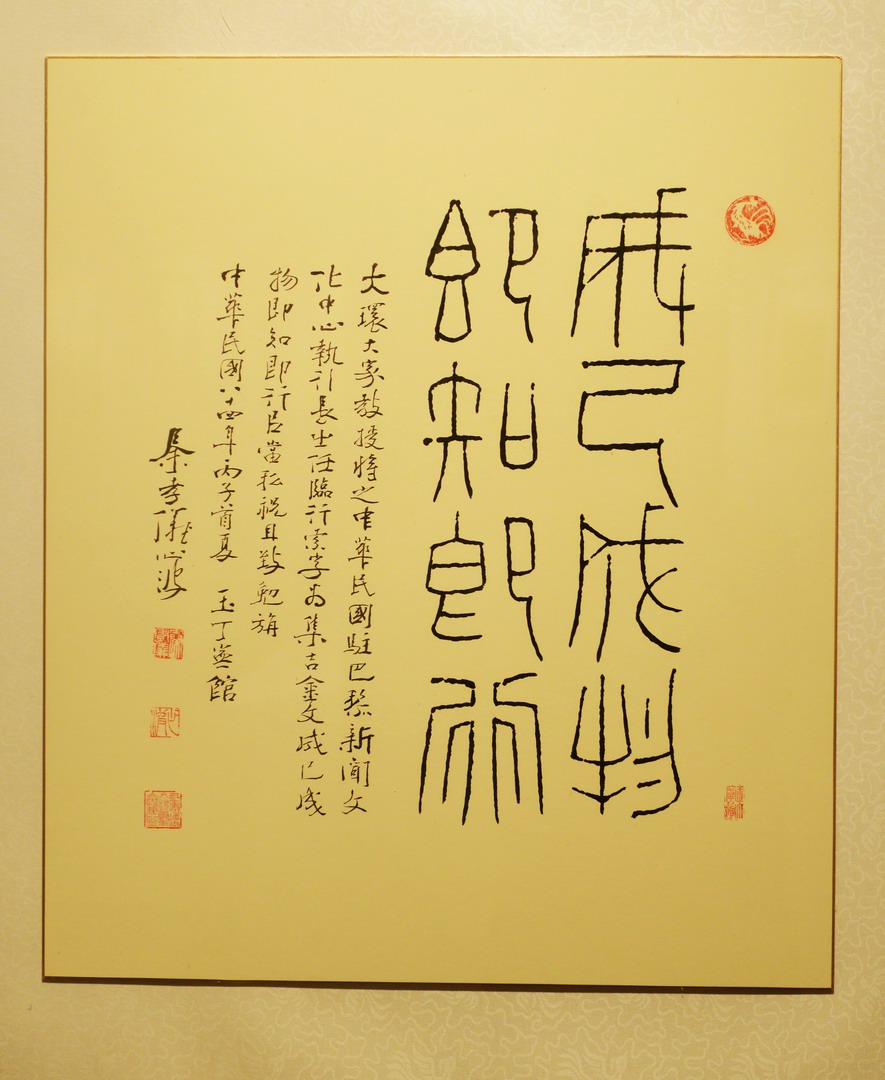 成己成物
即知即行
大環大家教授將之中華民國駐巴黎新聞文
化中心執行長出任臨行索字為集吉金文成己成
物即知即行呂當私祝且致勉旃
中華民國八十四年丙子首夏 玉丁寧館
秦孝儀心波